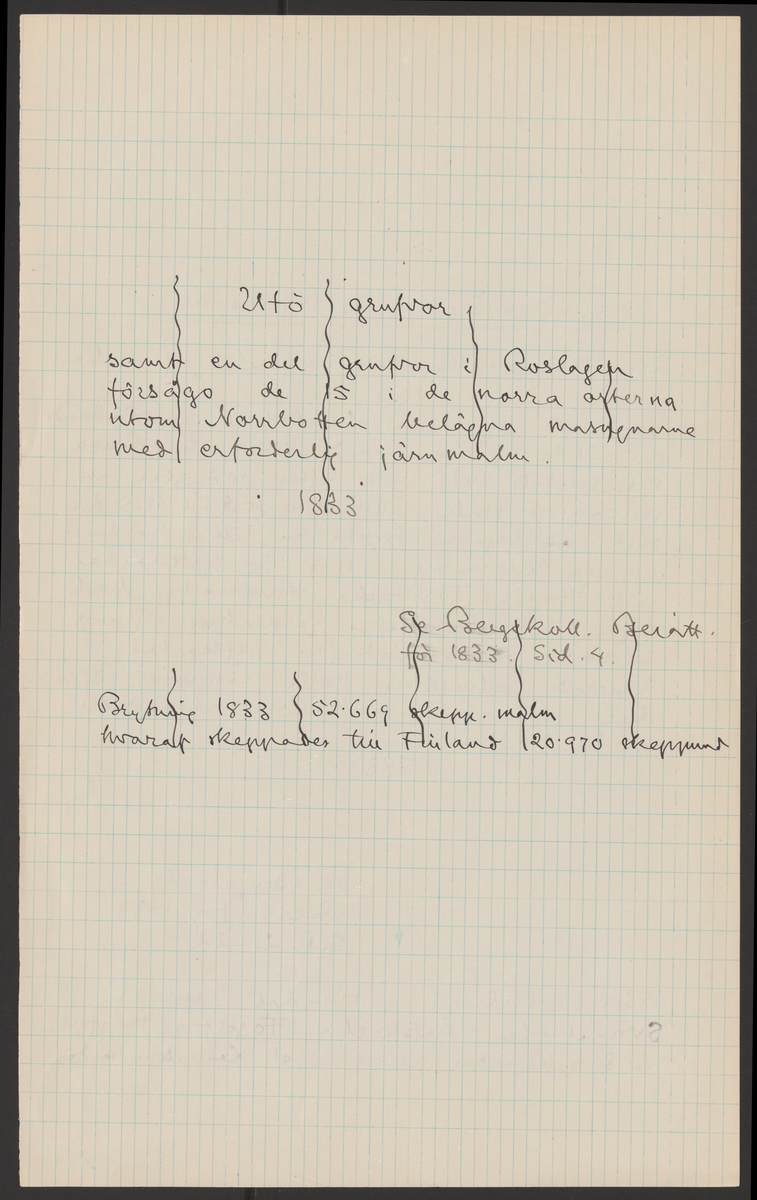 Utö grufvor
samt en del grufvor i Roslagen
försågo de 15 i de norra orterna
utom Norrbotten belägna masugnarne
med erforderlig järnmalm.
1833
Se Bergskoll. Berätt.
för 1833. Sid. 4.
Brytning 1833 52.669 skepp. malm
hvaraf skeppades till Finland 20.970 skeppund